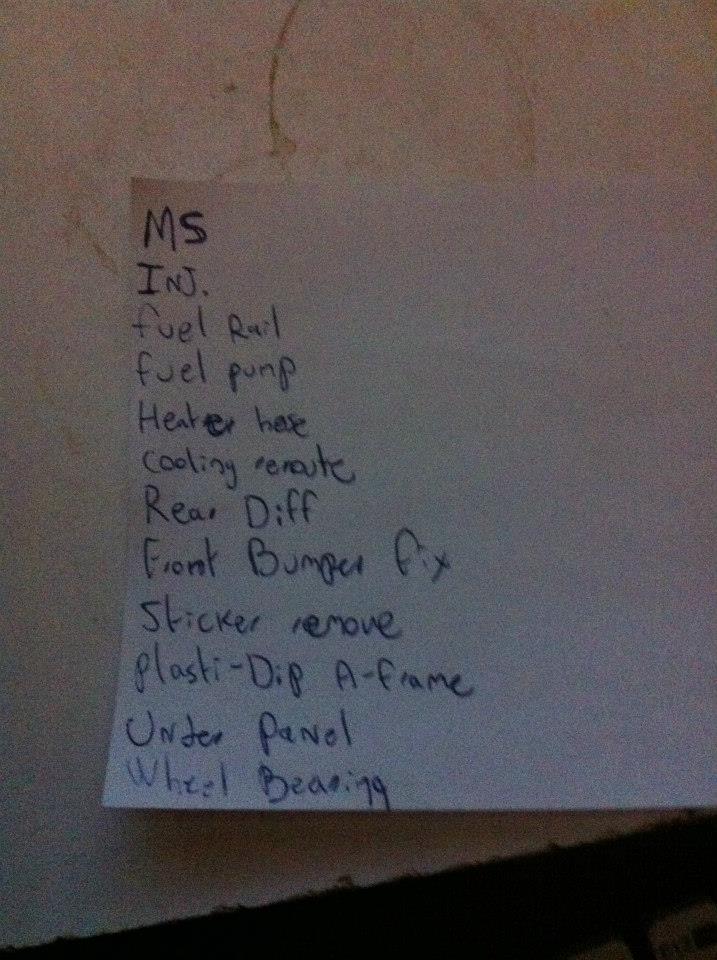 MS
INJ.
fuel Rail
fuel pump
Heater hose
Cooling reroute
Rear Diff
Front Bumper fix
Sticker remove
Plasti-Dip A-frame
Under Panel
Wheel Bearing